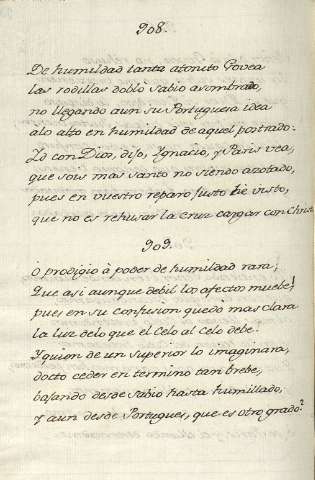 908.
De humildad tanta atonito Govea
las rodillas doblò sabio asombrado,
no llegando aun su Portuguesa idea
alo alto en humildad de aquel postrado:
Id con Dios, dijo, Ygnacio, y Paris vea,
que sois mas santo no siendo azotado,
pues en vuestro reparo justo he visto,
que no es rehusar la cruz cargar con Christ
909.
O prodigio à poder de humildad rara;
Que asi aunque debil los afectos muebe!
pues en su confusion quedò mas clara
la luz delo que el Celo al celo debe.
Y quien de un Superior lo imaginara,
docto ceder en termino tan brebe,
bajando desde sabio hasta humillado,
y aun desde Portugues, que es otro grado?